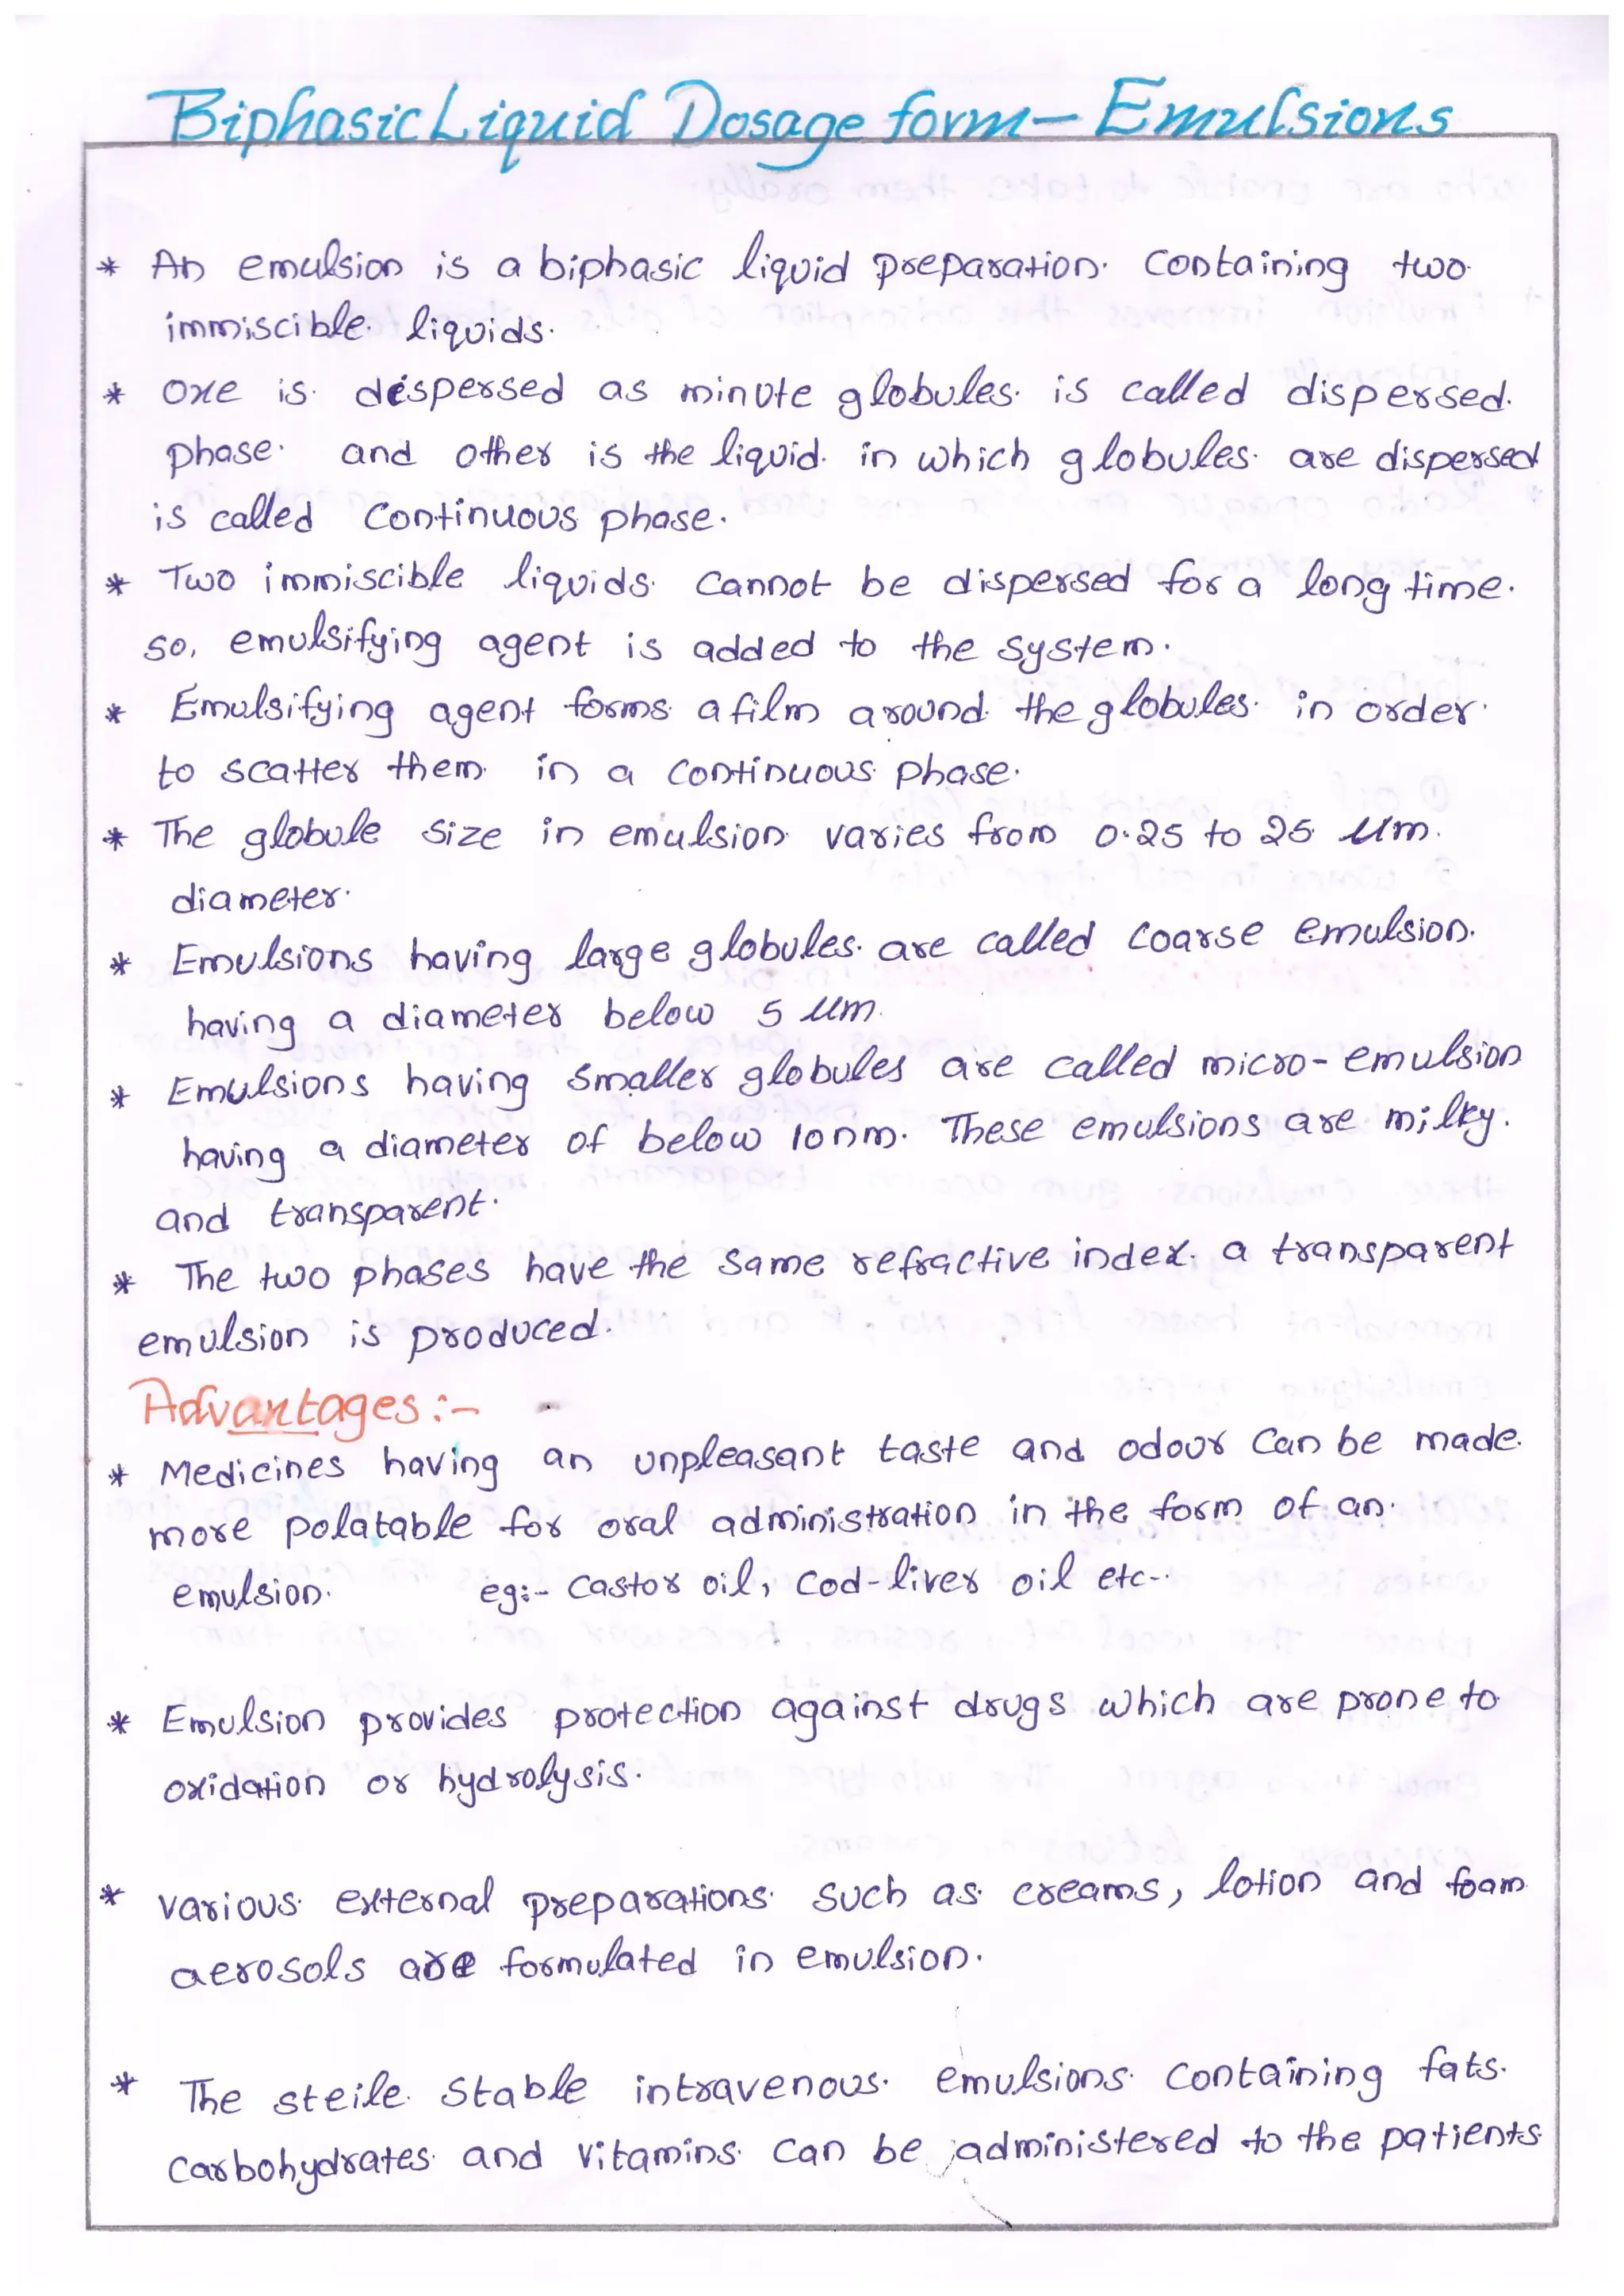 Biphasic Liquid Dosage form- Emulsions
* An emulsion is a biphasic liquid preparation. Containing two
immiscible. liquids.
* One is. dispersed as minute globules. is called dispersed.
phase. and other is the liquid. in which globules. are dispersed
is called Continuous phase.
* Two immiscible liquids. Cannot be dispersed for a long time.
so, emulsifying agent is added to the system.
* Emulsifying agent forms a film around the globules. in order.
to scatter them. in a Continuous phase.
* The globule size in emulsion varies from 0.25 to 25 µm.
diameter.
* Emulsions having large globules. are called coarse emulsion.
having a diameter below 5 µm.
* Emulsions having smaller globules are called micro-emulsion
having a diameter of below 10nm. These emulsions are milky.
and transparent.
* The two phases have the same refractive index. a transparent
emulsion is produced.
Advantages:-
* Medicines having an unpleasant taste and odour Can be made.
more polatable for oral administration in the form of an.
emulsion. eg:- Castor oil, Cod-liver oil etc--
* Emulsion provides protection against drugs which are prone to
oxidation or hydrolysis.
* various. external preparations. Such as. creams, lotion and foam
aerosols are formulated in emulsion.
* The steile. Stable intravenous. emulsions. Containing fats.
Carbohydrates. and vitamins. Can be administered to the patients